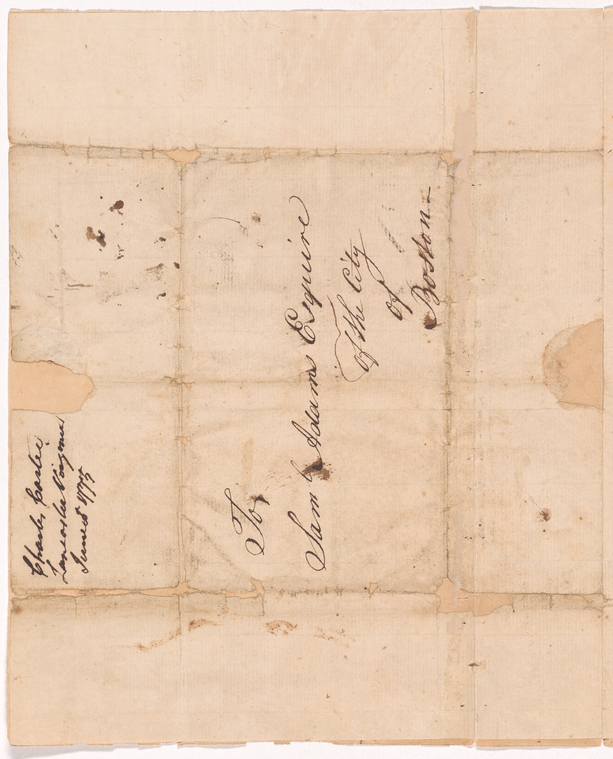 To,
Saml Adams Esquire
of the City
of
Boston
Charles Carter
Lancaster Virginia
June 1775